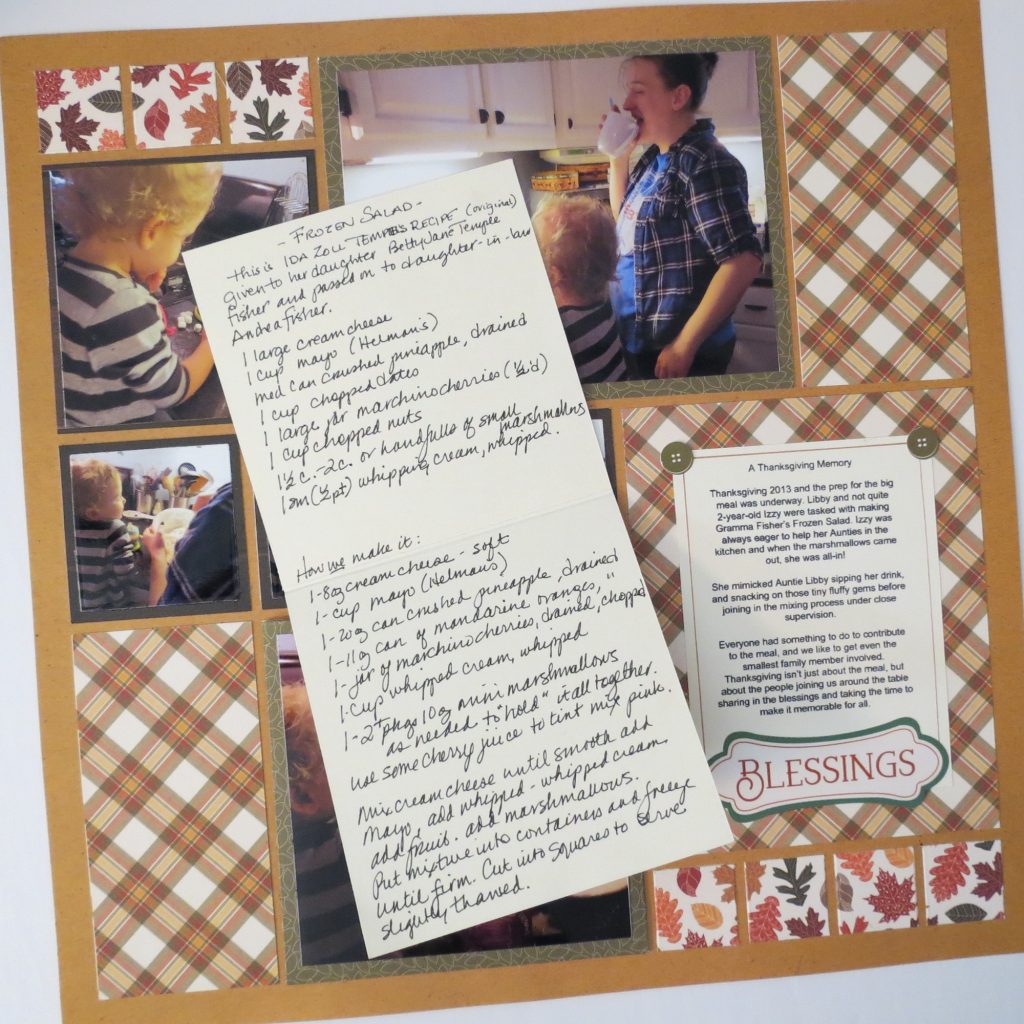 - FROZEN SALAD -
This is IDA ZOLL TEMPLE'S RECIPE (original)
given to her daughter Betty Jane Temple
Fisher and passed on to daughter-in-law
Andrea Fisher.
1 large cream cheese
1 cup mayo (Helman's)
med can crushed pineapple, drained
1 cup chopped dates
1 large jar marchino cherries (½'d)
1 cup chopped nuts
1½ c. - 2 c. or handfulls of small marshmallows
1 sm (½ pt) whipping cream, whipped.
How we make it:
1 - 8 oz cream cheese - soft
1 - cup mayo (Helman's)
1 - 20 oz can crushed pineapple, drained
1 - 11 oz can of mandarine oranges, "
1 - jar of marchino cherries, drained, chopped
1 - cup whipped cream, whipped
1 - 2 pkgs 10 oz mini marshmallows
as needed to "hold" it all together.
use some cherry juice to tint mix pink.
Mix cream cheese until smooth and add
mayo, add whipped - whipped cream,
add fruit. add marshmallows.
Put mixture into containers and freeze
until firm. Cut into squares to serve
slightly thawed.
A Thanksgiving Memory
Thanksgiving 2013 and the prep for the big
meal was underway. Libby and not quite
2-year-old Izzy were tasked with making
Gramma Fisher's Frozen Salad. Izzy was
always eager to help her Aunties in the
kitchen and when the marshmallows came
out, she was all-in!
She mimicked Auntie Libby sipping her drink,
and snacking on those tiny fluffy gems before
joining in the mixing process under close
supervision.
Everyone had something to do to contribute
to the meal, and we like to get even the
smallest family member involved.
Thanksgiving isn't just about the meal, but
about the people joining us around the table
sharing in the blessings and taking the time to
make it memorable for all.
BLESSINGS